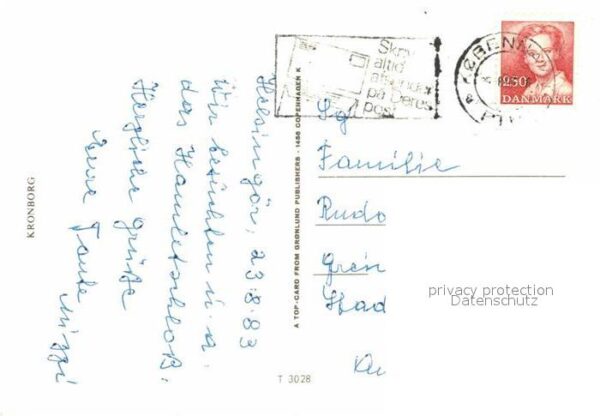 KRONBORG
Helsingör, 23.8.83
Wir besichten u. a.
das Hamletschloß.
Herzliche Grüße
Eure Tante
A TOP-CARD FROM GRØNLUND PUBLISHERS · 1456 COPENHAGEN K
T 3028
Skriv
altid
afsender
på Deres
post
KØBENHAVN
250
DANMARK
Familie
privacy protection
Datenschutz